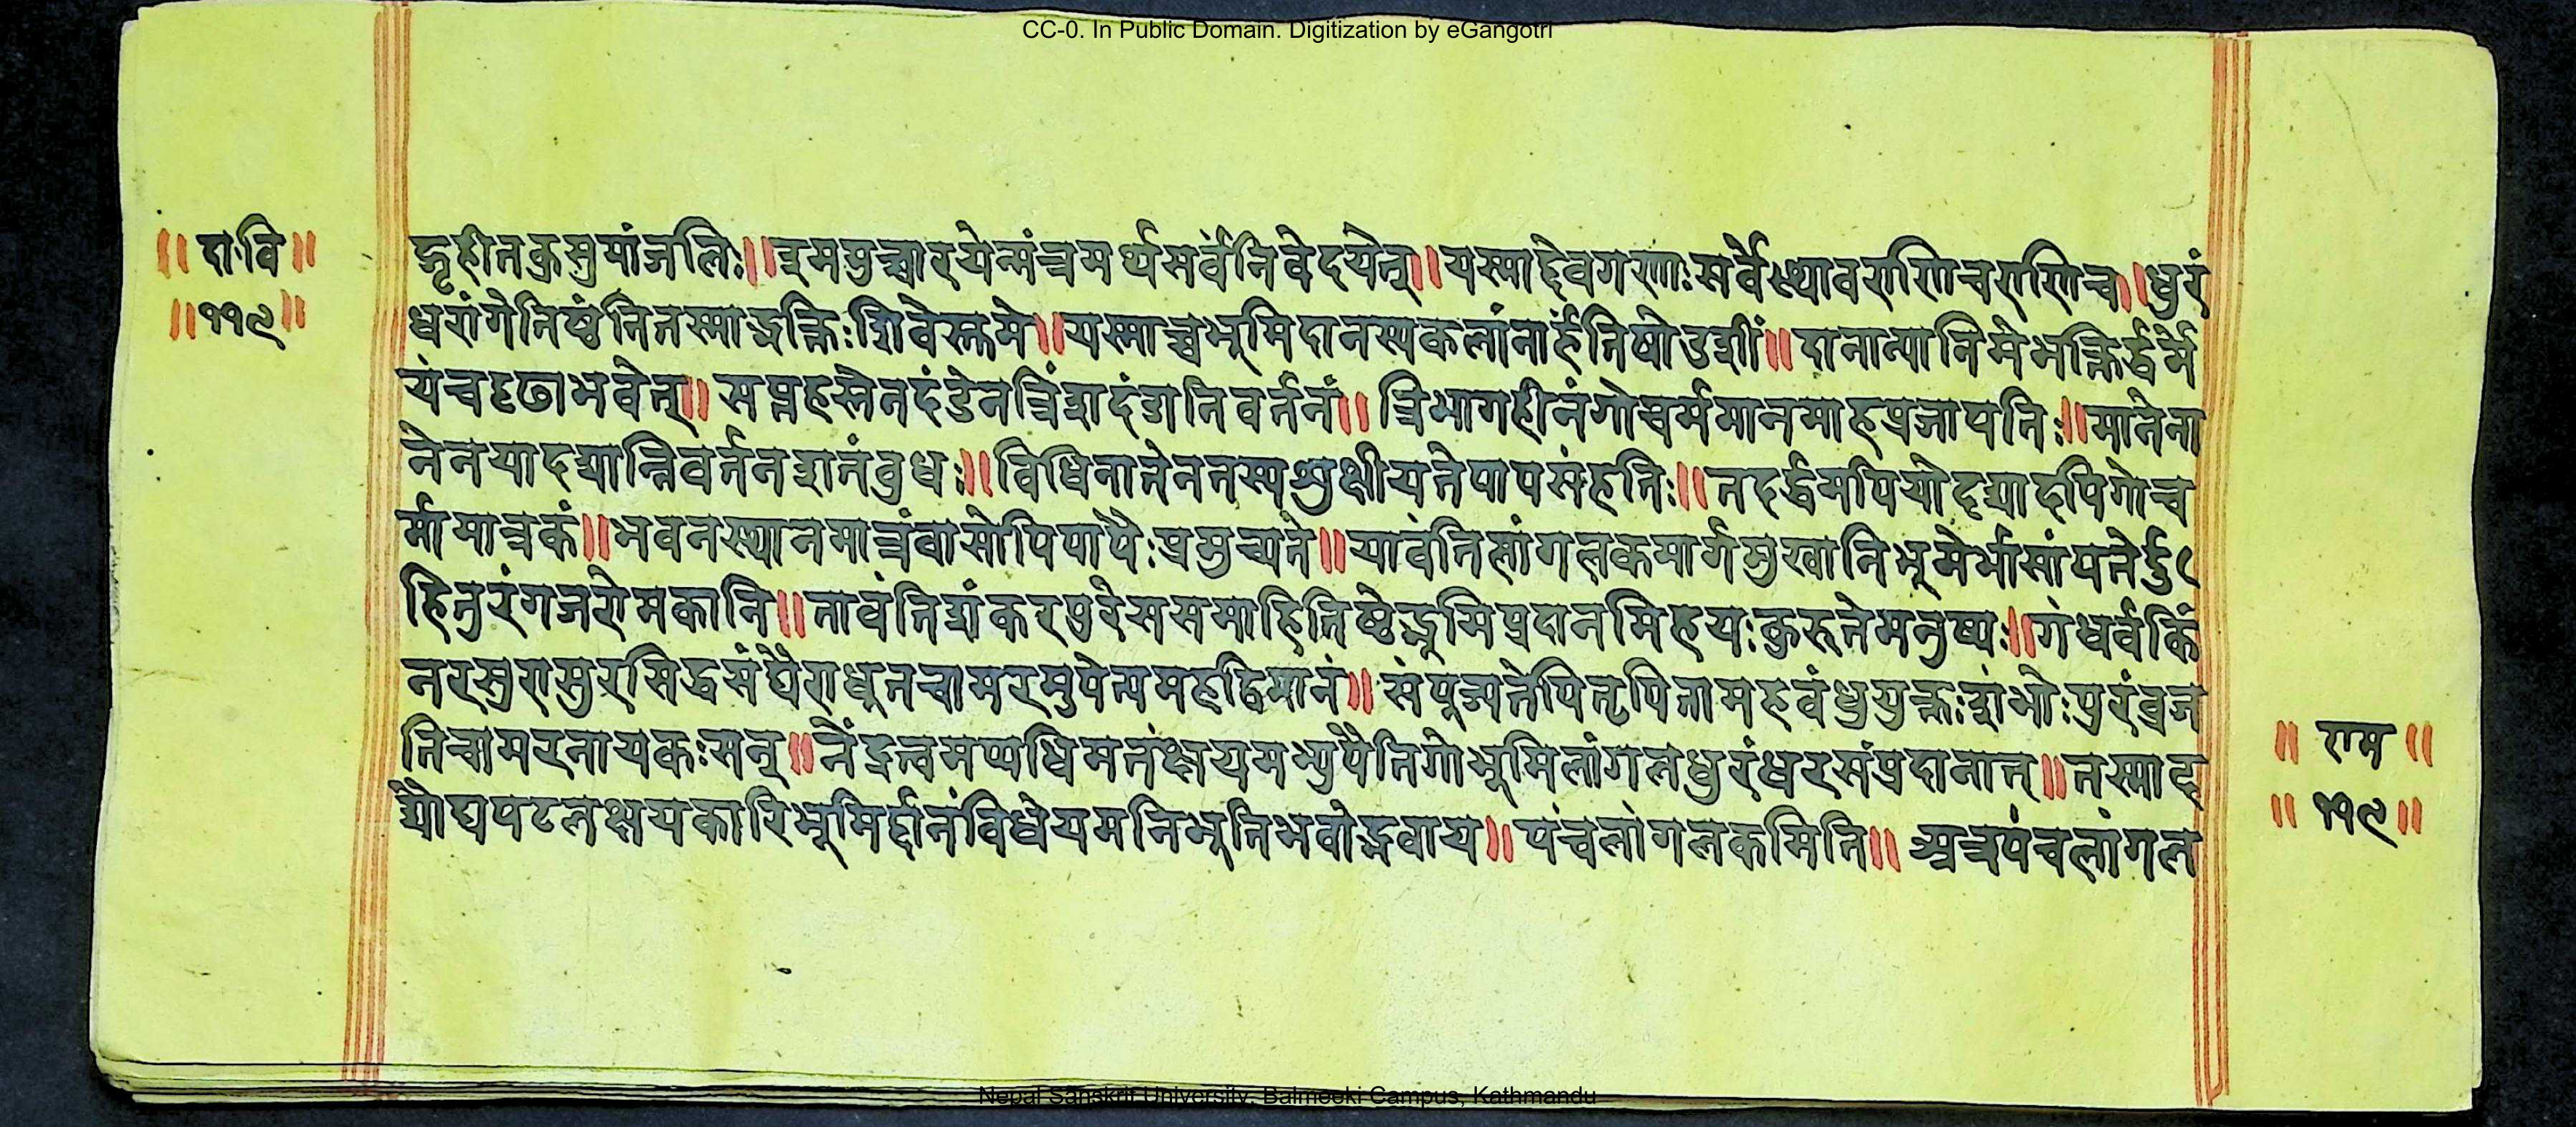 CC-0. In Public Domain. Digitization by eGangotri
॥ दा॰वि ॥
॥ ११९ ॥
द्गृहीतकुसुमांजलिः॥ इममुच्चारयेन्मंत्रमर्थसर्वंनिवेदयेत्॥ यस्माद्देवगणाःसर्वेस्थावराणिचराणिच॥ धुरं
धरांगेतिष्ठंतितस्माद्भक्तिःशिवेस्तुमे॥ यस्माच्चभूमिदानस्यकलांनार्हंतिषोडशीं॥ दानान्यानिमेभक्तिर्द्धर्मे
यंचदृढाभवेत्॥ सप्तहस्तेनदंडेनत्रिंशदंडानिवर्तनं॥ त्रिभागहीनंगोचर्ममानमाहप्रजापतिः॥ मानेना
नेनयोदद्यान्निवर्तनशतंबुधः॥ विधिनानेनतस्यशुक्षीयतेपापसंहतिः॥ तदर्द्धमपियोदद्यादपिगोच
र्ममात्रकं॥ भवनस्थानमात्रंवासोपिपापैःप्रमुच्यते॥ यावंतिलांगलकमार्गमुखानिभूमेर्भासांपतेर्दु
हितुरंगजरोमकानि॥ तावंतिशंकरपुरेससमाहितिष्ठेद्भूमिप्रदानमिहयःकुरुतेमनुष्यः॥ गंधर्वकिं
नरसुरासुरसिद्धसंघैराधूतचामरमुपेत्यमहद्विमानं॥ संपूज्यतेपितृपितामहबंधुयुक्तःशंभोःपुरंव्रज
तिचामरनायकःसन्॥ नेंद्रत्वमप्यधिमतंक्षयमभ्युपैतिगोभूमिलांगलधुरंधरसंप्रदानात्॥ तस्माद
घौघपटलक्षयकारिभूमिर्द्दानंविधेयमतिभूतिभवोद्भवाय॥ पंचलांगलकमिति॥ अत्रपंचलांगल
॥ राम ॥
॥ ११९ ॥
Nepal Sanskrit University, Balmeeki Campus, Kathmandu